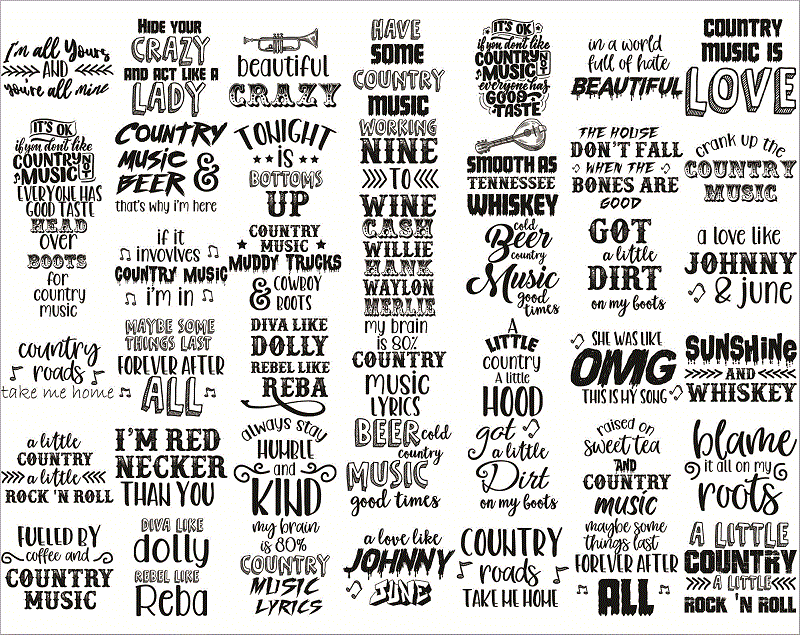 I'm all Yours
AND
You're all mine
it's OK
if you don't like
COUNTRY
MUSIC
NOT
EVERYONE HAS
GOOD TASTE
HEAD
over
BOOTS
for
country
music
country
roads
take me home
a little
COUNTRY
a little
ROCK 'N ROLL
FUELED BY
coffee and
COUNTRY
MUSIC
HIDE YOUR
CRAZY
AND ACT LIKE A
LADY
COUNTRY
MUSIC
BEER &
that's why i'm here
if it
involvles
COUNTRY MUSIC
i'm in
MAYBE SOME
THINGS LAST
FOREVER AFTER
ALL
I'M RED
NECKER
THAN YOU
DIVA LIKE
dolly
REBEL LIKE
Reba
beautiful
CRAZY
TONIGHT
is
BOTTOMS
UP
COUNTRY
MUSIC
MUDDY TRUCKS
& COWBOY
BOOTS
DIVA LIKE
DOLLY
REBEL LIKE
REBA
always stay
HUMBLE
and
KIND
my brain
is 80%
COUNTRY
MUSIC
LYRICS
HAVE
SOME
COUNTRY
MUSIC
WORKING
NINE
TO
WINE
CASH
WILLIE
HANK
WAYLON
MERLIE
my brain
is 80%
COUNTRY
music
LYRICS
BEER cold
country
MUSIC
good times
a love like
JOHNNY
JUNE
IT'S OK
if you don't like
COUNTRY
MUSIC
everyone has
GOOD
TASTE
SMOOTH AS
TENNESSEE
WHISKEY
cold
Beer
country
Music
good
times
A
LITTLE
country
A little
HOOD
got
a little
Dirt
on my boots
COUNTRY
roads
TAKE ME HOME
in a world
full of hate
BEAUTIFUL
THE HOUSE
DON'T FALL
WHEN THE
BONES ARE
GOOD
GOT
a little
DIRT
on my boots
SHE WAS LIKE
OMG
THIS IS MY SONG
raised on
sweet tea
AND
COUNTRY
music
maybe some
things last
FOREVER AFTER
ALL
COUNTRY
MUSIC IS
LOVE
crank up the
COUNTRY
MUSIC
a love like
JOHNNY
& june
SUNSHINE
AND
WHISKEY
blame
it all on my
roots
A LITTLE
COUNTRY
A LITTLE
ROCK 'N ROLL